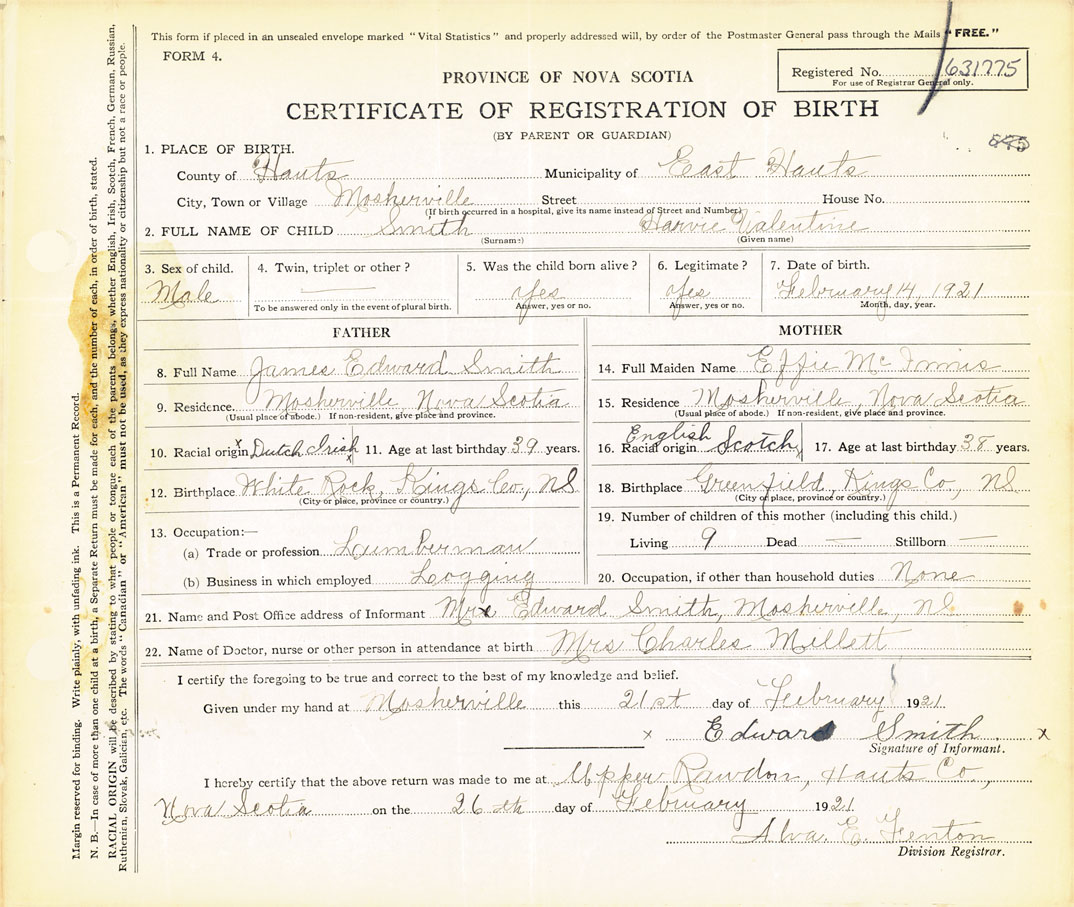 This form if placed in an unsealed envelope marked "Vital Statistics" and properly addressed will, by order of the Postmaster General pass through the Mails "FREE."
FORM 4.
Registered No. 631775
For use of Registrar General only.
PROVINCE OF NOVA SCOTIA
CERTIFICATE OF REGISTRATION OF BIRTH
(BY PARENT OR GUARDIAN)
1. PLACE OF BIRTH.
County of Hants Municipality of East Hants
City, Town or Village Mosherville Street House No.
(If birth occurred in a hospital, give its name instead of Street and Number)
2. FULL NAME OF CHILD Smith Harvie Valentine
(Surname) (Given name)
3. Sex of child. 4. Twin, triplet or other? 5. Was the child born alive? 6. Legitimate? 7. Date of birth.
Male Yes Yes February 14, 1921
To be answered only in the event of plural birth. Answer, yes or no. Answer, yes or no. Month, day, year.
FATHER
8. Full Name James Edward Smith
9. Residence. Mosherville, Nova Scotia
(Usual place of abode.) If non-resident, give place and province.
10. Racial origin Dutch Irish 11. Age at last birthday 39 years.
12. Birthplace White Rock, Kings Co., NS
(City or place, province or country.)
13. Occupation:—
(a) Trade or profession Lumberman
(b) Business in which employed Logging
MOTHER
14. Full Maiden Name Effie McInnis
15. Residence Mosherville, Nova Scotia
(Usual place of abode.) If non-resident, give place and province.
16. Racial origin English Scotch 17. Age at last birthday 38 years.
18. Birthplace Greenfield, Kings Co., NS
(City or place, province or country.)
19. Number of children of this mother (including this child.)
Living 9 Dead — Stillborn —
20. Occupation, if other than household duties None
21. Name and Post Office address of Informant Edward Smith, Mosherville, NS
22. Name of Doctor, nurse or other person in attendance at birth Mrs Charles Millett
I certify the foregoing to be true and correct to the best of my knowledge and belief.
Given under my hand at Mosherville this 21st day of February 1921.
x Edward Smith x
Signature of Informant.
I hereby certify that the above return was made to me at Upper Rawdon, Hants Co.,
Nova Scotia on the 26th day of February 1921
Alva E. Fenton
Division Registrar.
Margin reserved for binding. Write plainly, with unfading ink. This is a Permanent Record.
N. B.—In case of more than one child at a birth, a Separate Return must be made for each, and the number of each, in order of birth, stated.
RACIAL ORIGIN will be described by stating to what people or tongue each of the parents belongs, whether English, Irish, Scotch, French, German, Russian,
Ruthenien, Slovak, Galician, etc. The words "Canadian" or "American" must not be used, as they express nationality or citizenship but not a race or people.